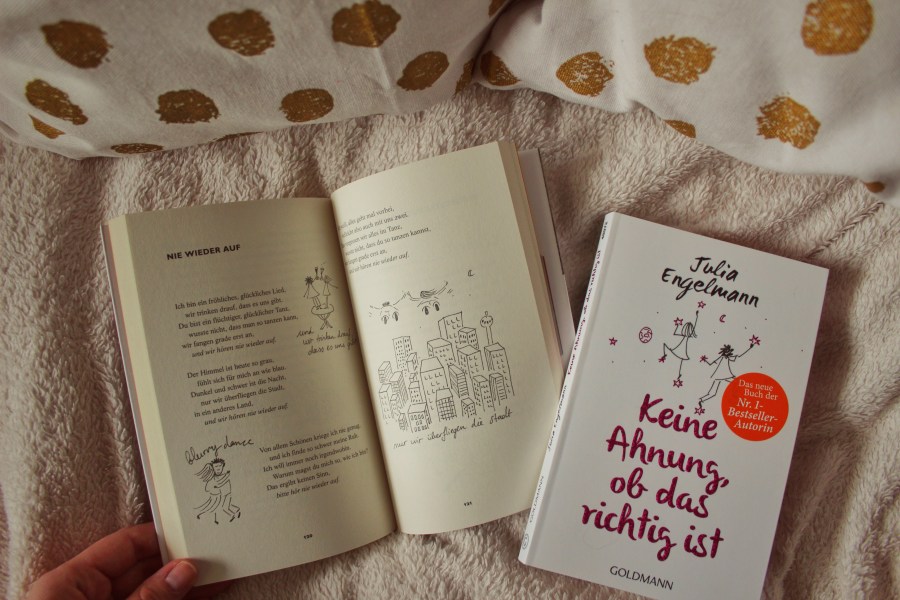 NIE WIEDER AUF
Ich bin ein fröhlicher, glücklicher Lied,
wir trinken drauf, dass es uns gibt.
Du bist ein flüchtiger, glücklicher Tanz,
wusste nicht, dass man so tanzen kann,
wir fangen grade erst an
und wir hören nie wieder auf.
Der Himmel ist heute so grau,
fühlt sich für mich an wie blau.
Dunkel und schwer ist die Nacht,
nur wir überfliegen die Stadt,
in ein anderes Land,
und wir hören nie wieder auf.
Von allem Schönen kriege ich nie genug,
und ich finde so schwer meine Ruh.
Ich will immer noch irgendwohin.
Warum magst du mich so, wie ich bin?
Das ergibt keinen Sinn,
bitte hör nie wieder auf.
und
wir trinken drauf
dass es uns
blurry dance
alles geht mal vorbei,
auch mit uns zwei.
wir alles im Tanz,
nicht, dass du so tanzen kannst,
fangen grade erst an
hören nie wieder auf.
nur wir überfliegen die Stadt
Julia
Engelmann
Das neue
Buch der
Nr. 1-
Bestseller-
Autorin
Keine
Ahnung,
ob das
richtig ist
GOLDMANN